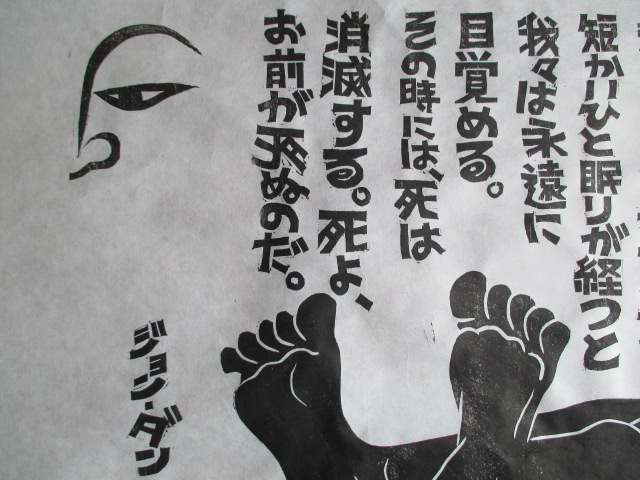 短かいひと眠りが経つと
我々は永遠に
目覚める。
その時には、死は
消滅する。死よ、
お前が死ぬのだ。
ジョン・ダン